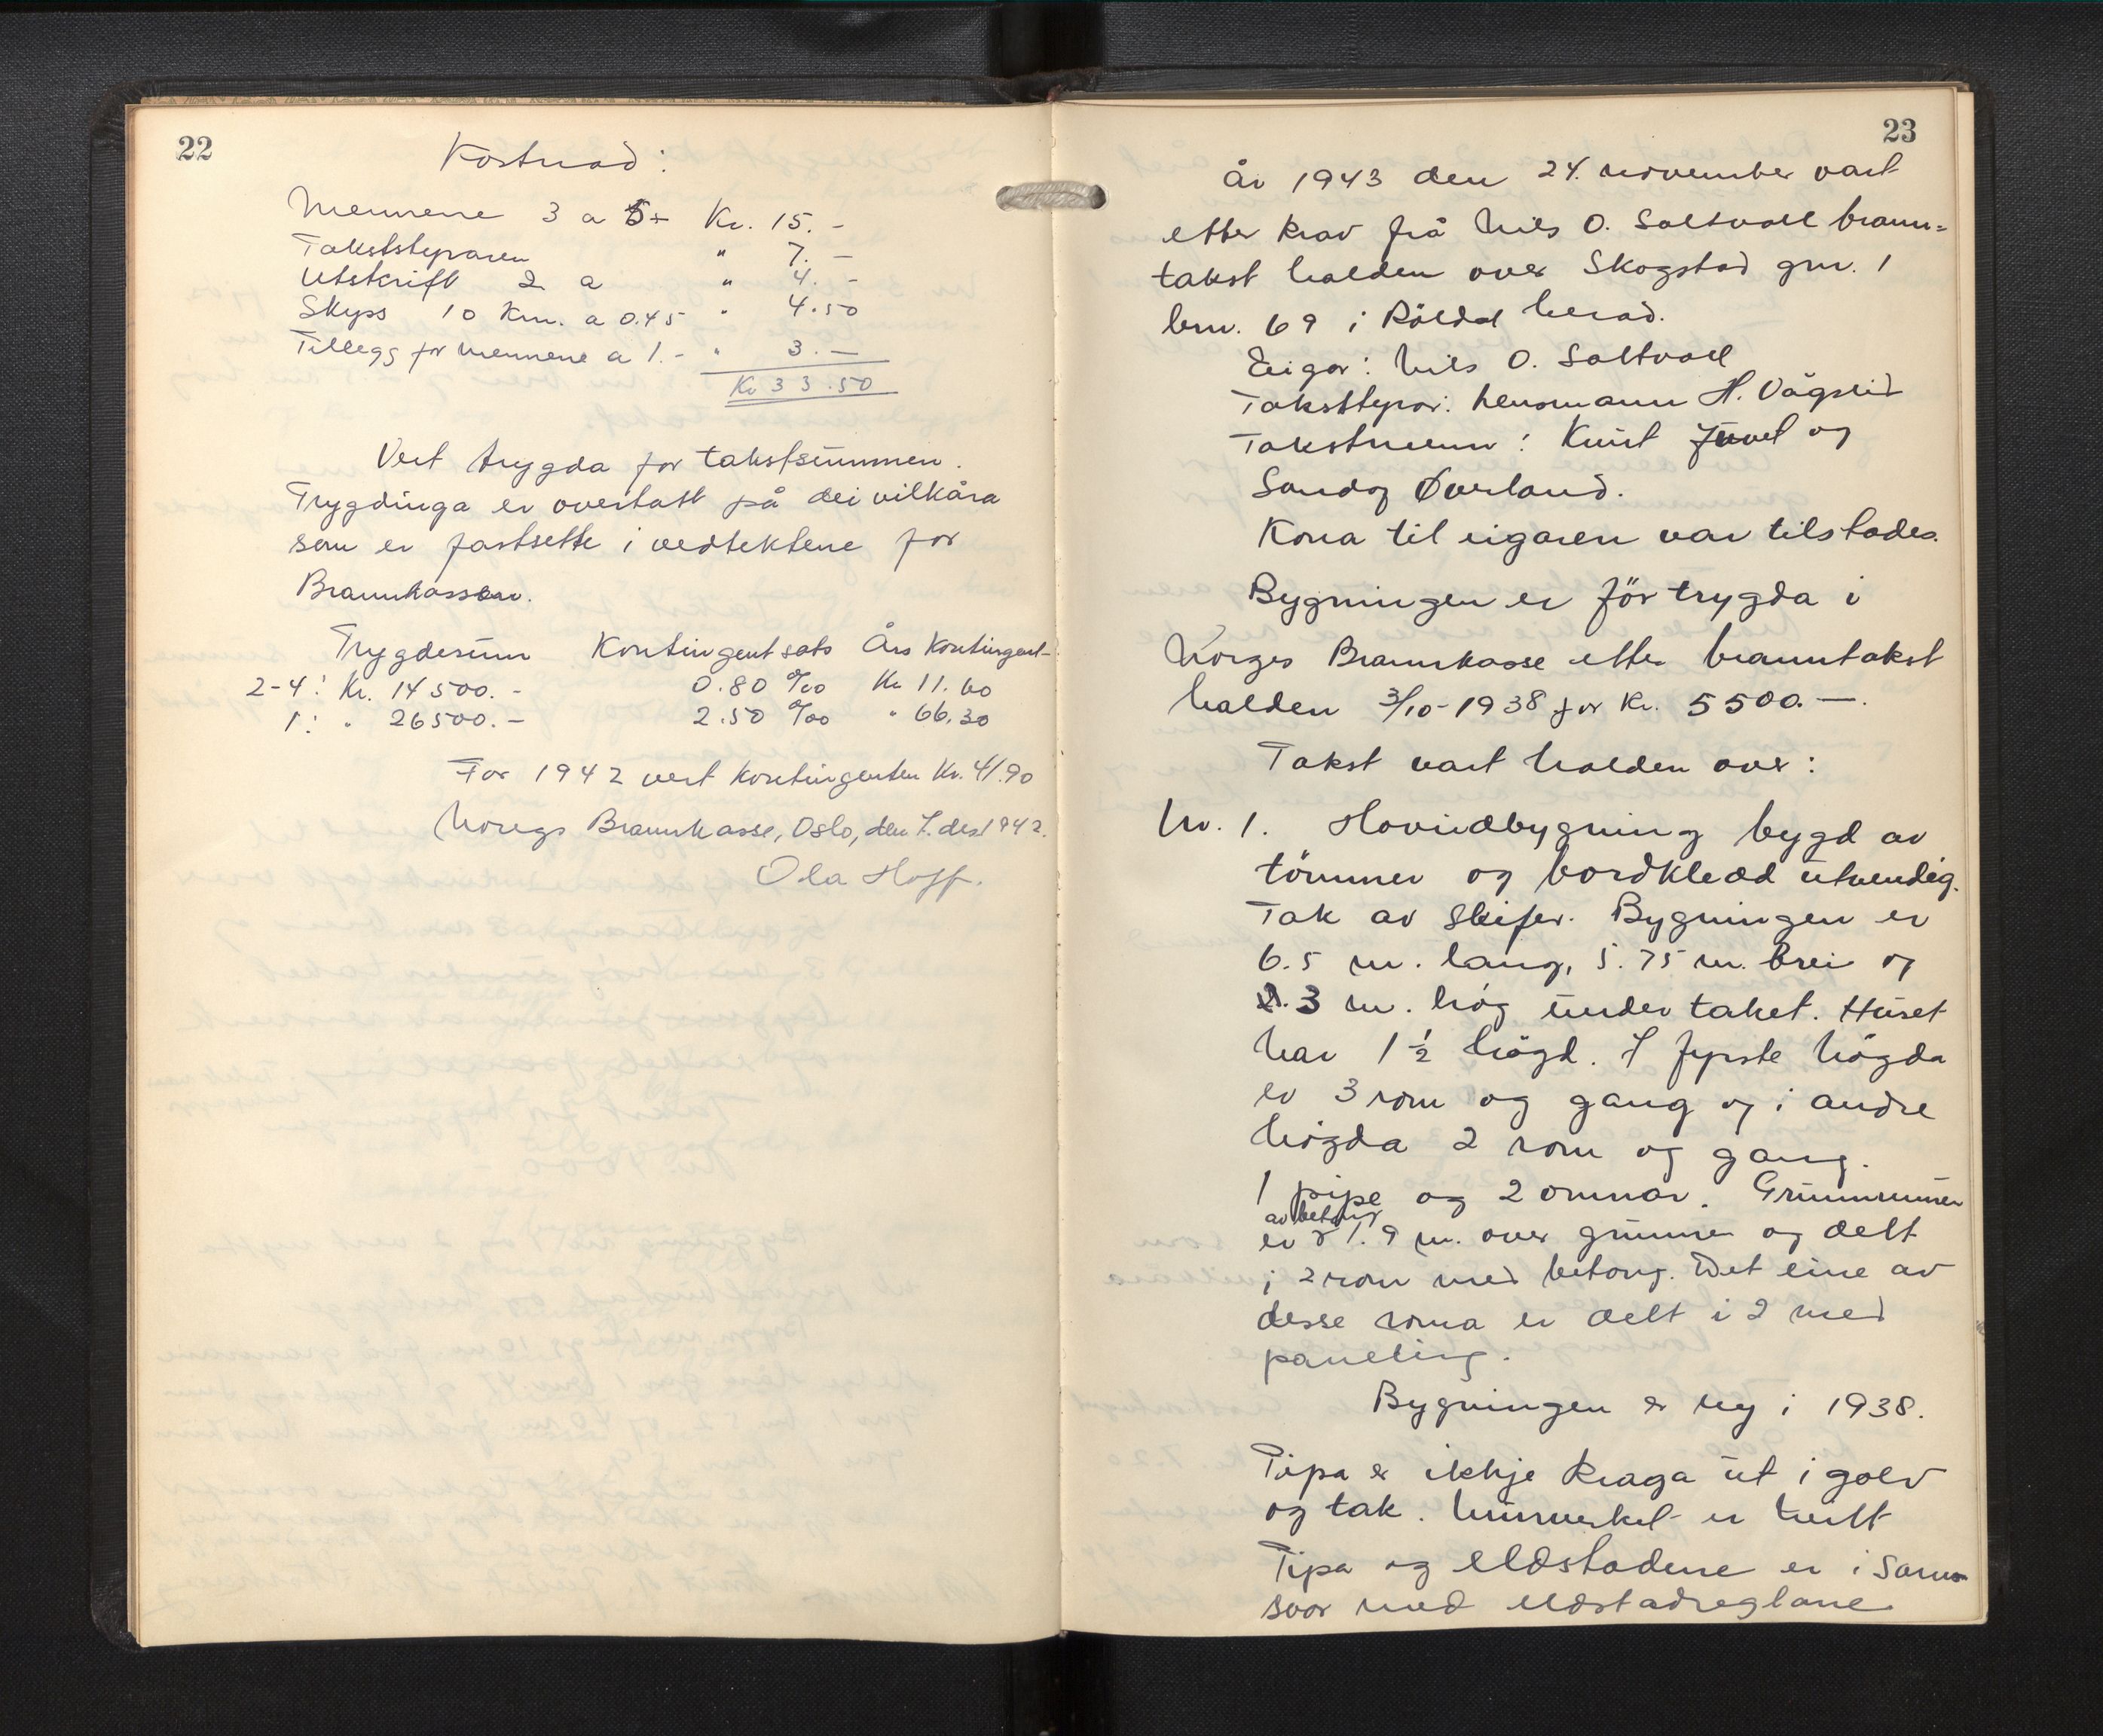 22
Kostnad:
Mennene 3 a 5.- Kr. 15.-
Takststyraren " 7.-
Utskrift 2 a " 4.-
Skyss 10 km. a 0.45 " 4.50
Tillegg for mennene a 1.- " 3.-
Kr 33.50
Vert trygda for takstsummen.
Trygdinga er overtatt på dei vilkåra
som er fastsette i vedtektene for
Brannkassen.
Trygdesum Kontingentsats Års kontingent
2-4: Kr. 14500.- 0.80 ‰ Kr 11.60
1: " 26500.- 2.50 ‰ " 66.30
For 1942 vert kontingenten Kr. 41.90
Noregs Brannkasse, Oslo, den 7. des 1942.
Ola Hoff.
23
År 1943 den 24. november vart
etter krav frå Nils O. Saltvoll brann=
takst halden over Skogstad gnr. 1
bnr. 69 i Röldal herad.
Eigar: Nils O. Saltvoll
Takststyrar: lensmann H. Vågslid
Takstmenn: Knut Juvet og
Øverland.
Kona til eigaren var tilstades.
Bygningen er för trygda i
Norges Brannkasse etter branntakst
halden 3/10-1938 for Kr. 5500.—.
Takst vart halden over:
Nr. 1. Hovudbygning bygd av
tömmer og bordklædd utvendig.
Tak av skifer. Bygningen er
6.5 m. lang, 5.75 m. brei og
3 m. hög under taket. Huset
har 1 1/2 högd. I fyrste högda
er 3 rom og gang og i andre
högda 2 rom og gang.
1 pipe og 2 omnar. Grunnmuren
av betong
er 1.9 m. over grunnen og delt
i 2 rom med betong. Det eine av
desse roma er delt i 2 med
paneling.
Bygningen er ny i 1938.
Pipa er ikkje kraga ut i golv
og tak. Murverket er kvitt
Pipa og eldstadene er i sam-
svar med eldstadreglane